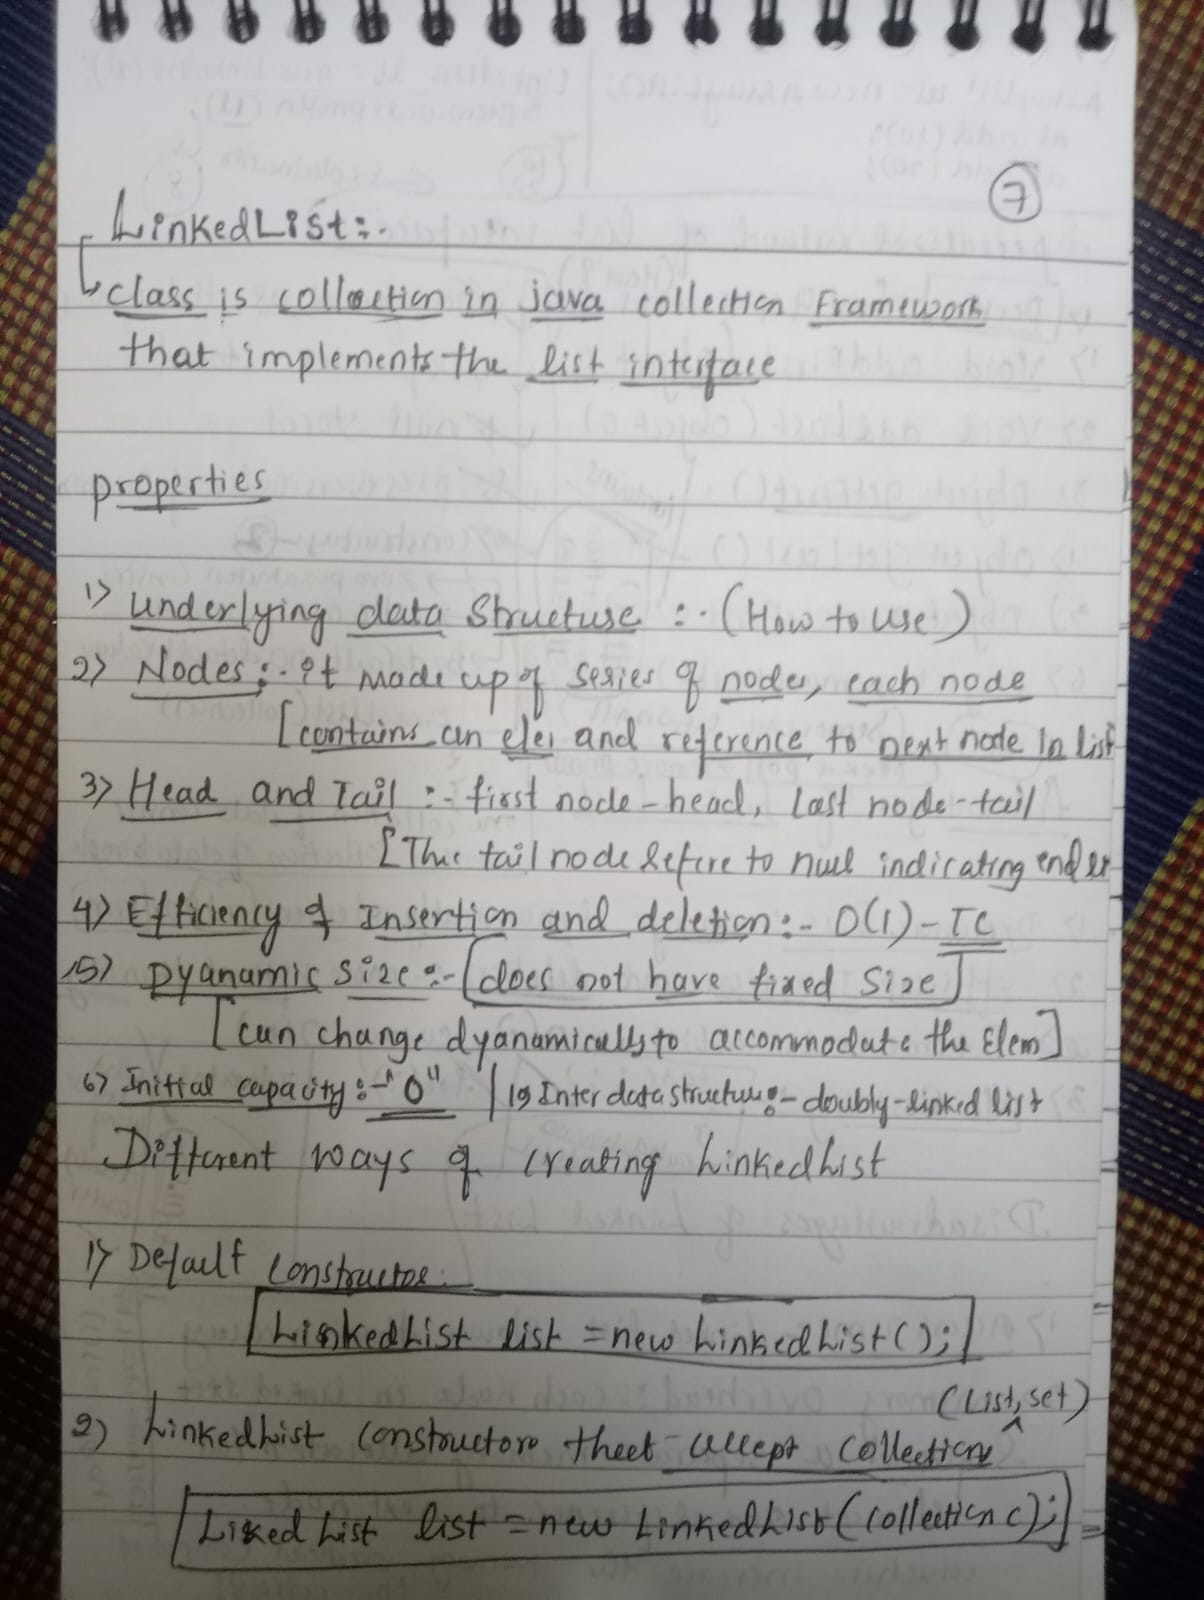 7
LinkedList:-
class is collection in java collection Framework
that implements the list interface
properties
1> Underlying data Structure :- (How to use)
2> Nodes :- it made up of series of nodes, each node
[contains an ele, and reference to next node in list
3> Head and Tail :- first node - head, Last node - tail
[The tail node refere to null indicating end
4> Efficiency of Insertion and deletion :- O(1) - TC
5> Dyanamic Size :- [does not have fixed Size]
[can change dyanamically to accommodate the Elem]
6> Initial capacity :- "0" | Inter datastructure - doubly-linked list
Different ways of creating LinkedList
1> Default constructor
LinkedList list = new LinkedList();
(List, set)
2) LinkedList constructor that accept collection
Linked List list = new LinkedList(collection c);